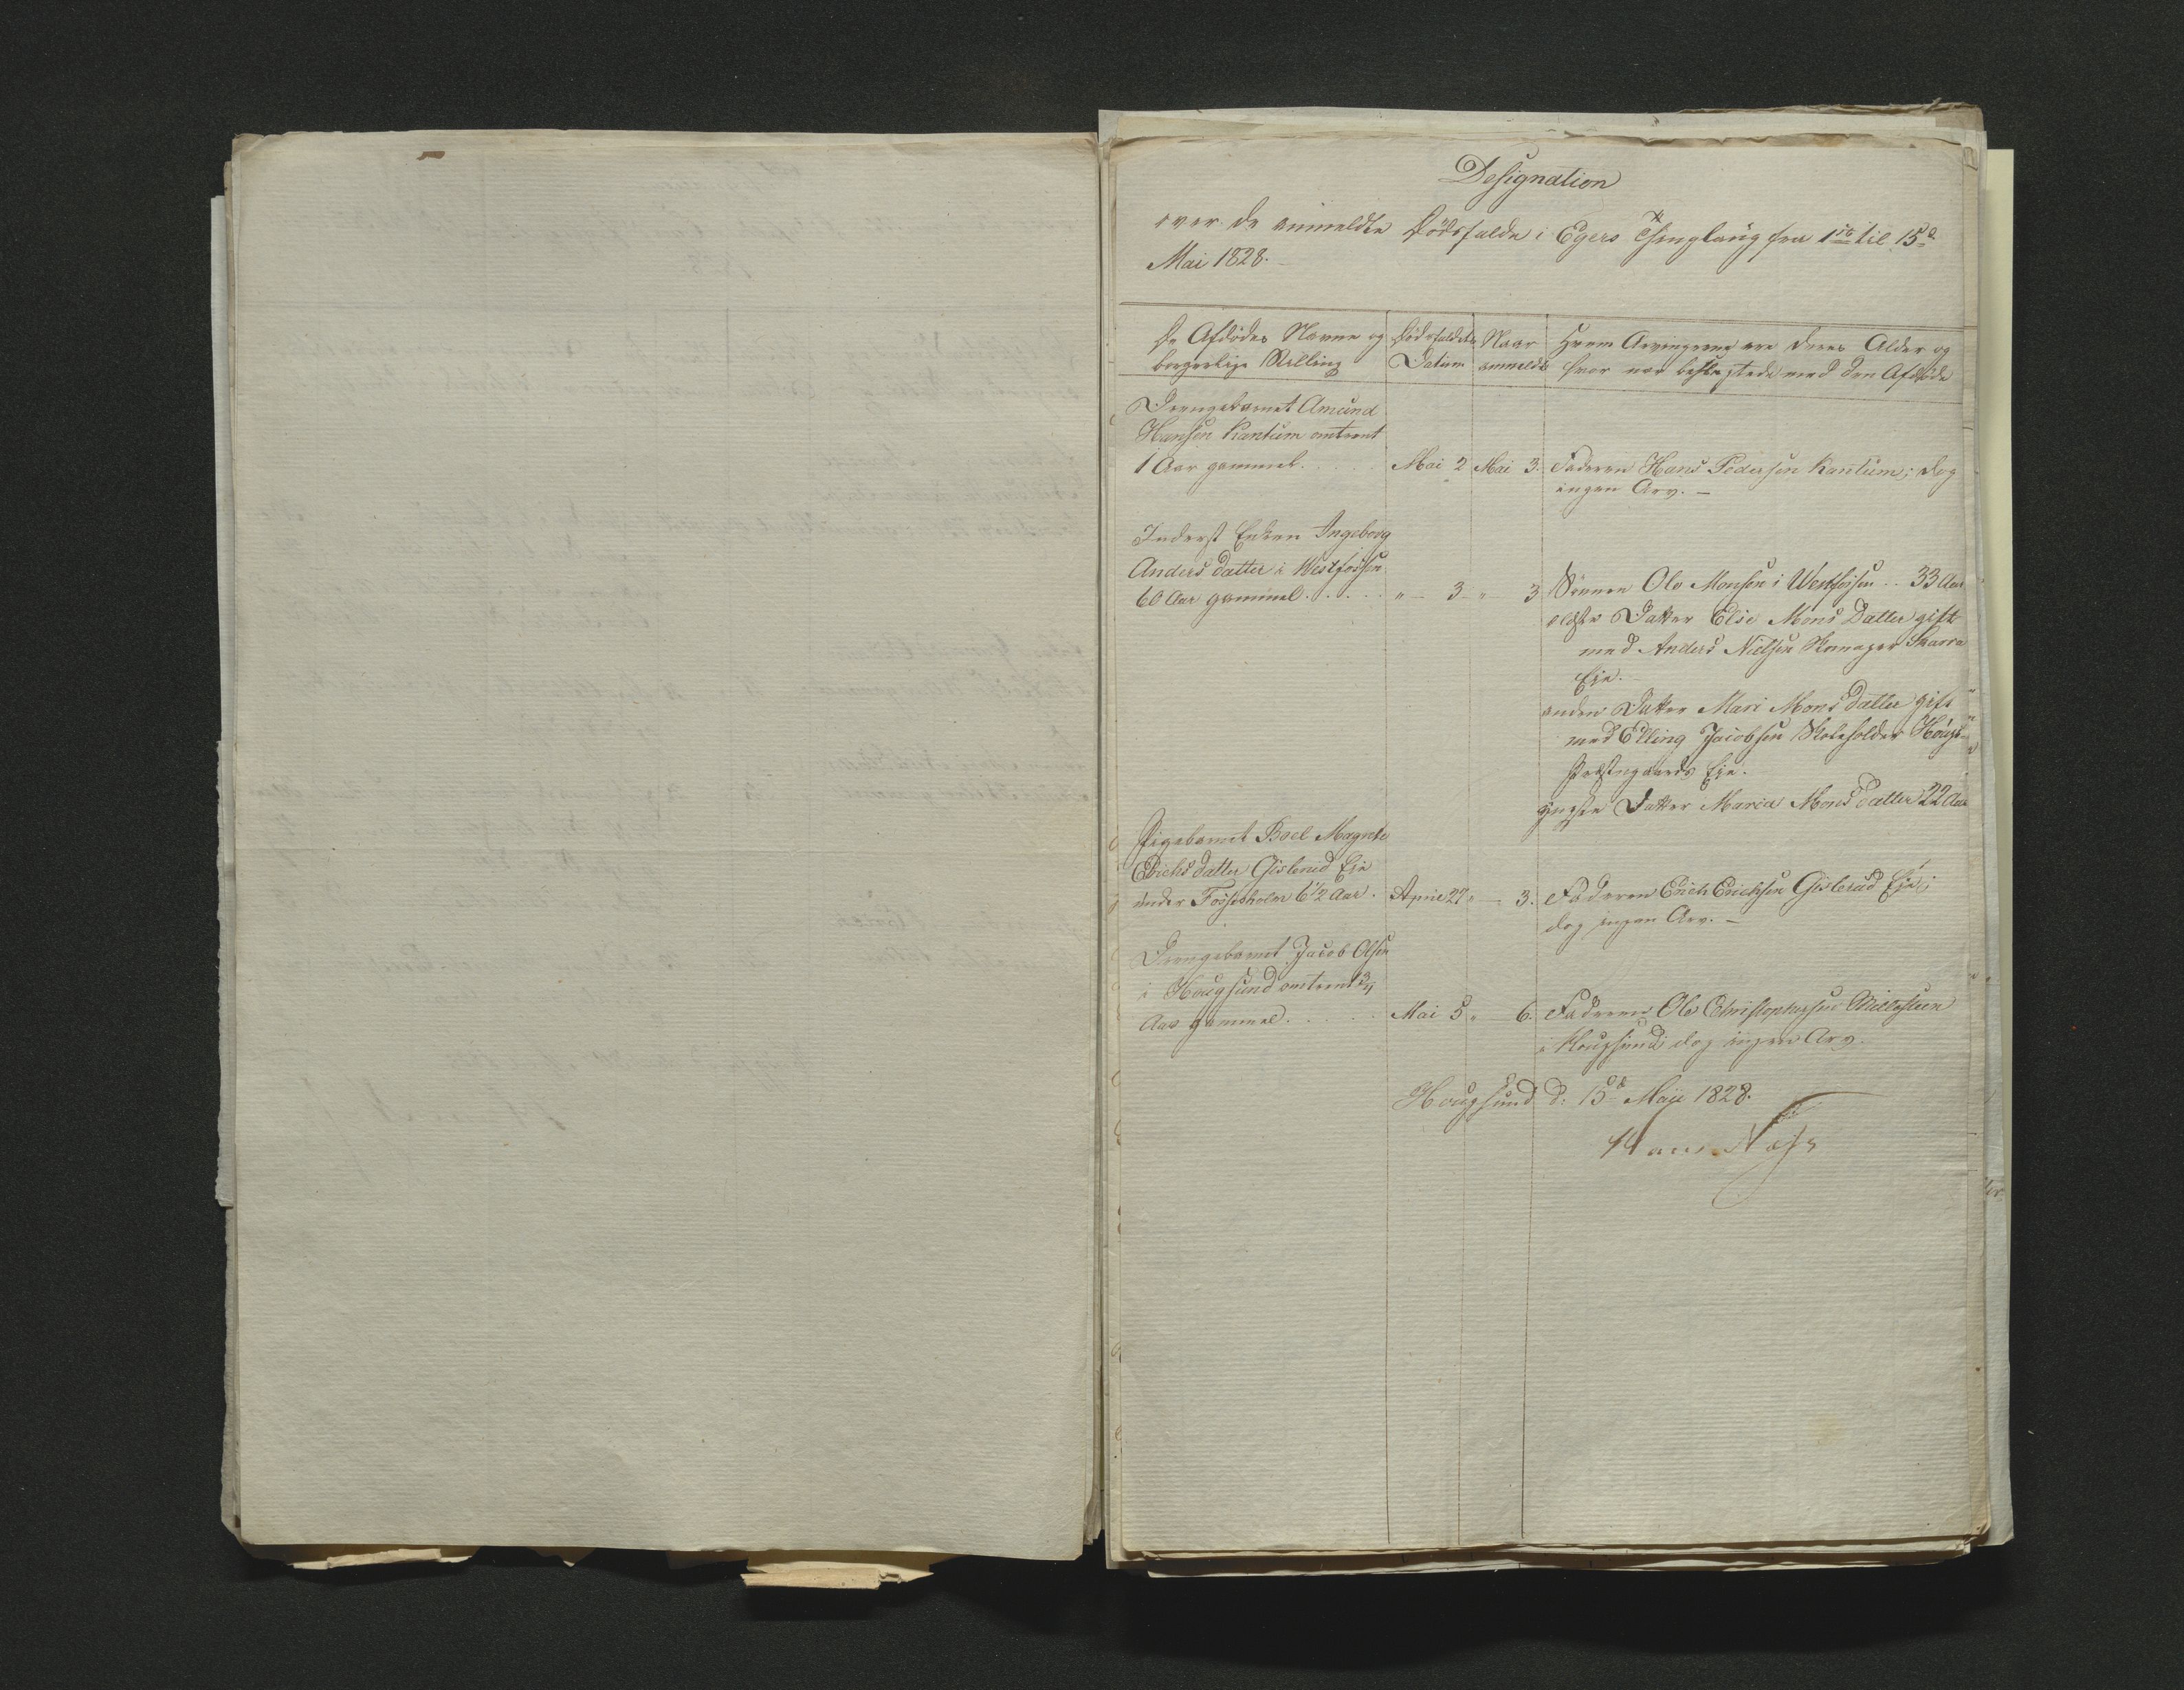 Designation
over de anmeldte Dödsfalde i Egers Thinglaug fra 1ste til 15de
Mai 1828.
De Afdödes Navne og borgerlige Stilling
Dödsfaldets Datum
Naar anmeldt
Hvem Arvingerne ere deres Alder og
hvor nær beslegtede med den Afdöde
Drengebarnet Amund
Hansen Kantum omtrent
1 Aar gammel. . . . . Mai 2 Mai 3. Faderen Hans Pedersen Kantum; dog
ingen Arv. —
Inderst Enken Ingeborg
Anders datter i Westfossen
60 Aar gammel. . . . . " — 3 — " 3 Sönnen Ole Monsen i Westfossen . . 33 Aar
ældste Datter Else Mons Datter gift
med Anders Nielsen Skomager Skarra
Eie.
anden Datter Mari Mons datter gift
med Elling Jacobsen Skoleholder Hougs-
Præstegaards Eie.
yngste Datter Maria Mons datter 22 Aar
Pigebarnet Boel Magrete
Erichs datter Gislerud Eie
under Fossesholm 6 1/2 Aar. April 27 " — 3. Faderen Erich Erichsen Gislerud Eie;
dog ingen Arv. —
Drengebarnet Jacob Olsen
i Hougsund omtrent 3/4
Aar gammel. . . . . Mai 5 " — 6. Faderen Ole Christophersen
i Hougsund dog ingen Arv.
Hougsund d: 15de Maji 1828.
Hans Næss